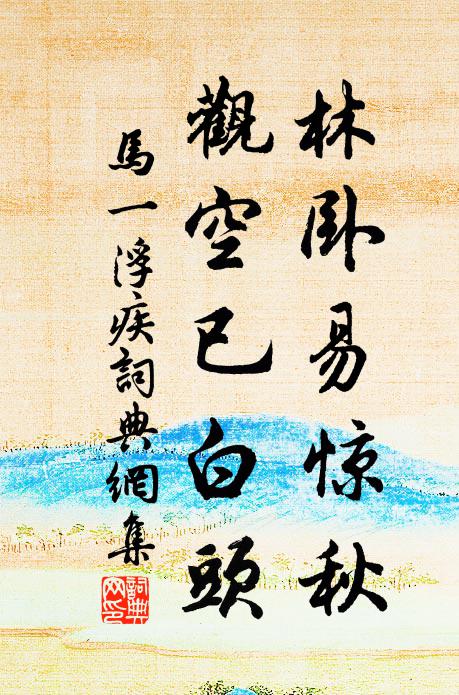 林卧易惊秋
觀空已白頭
馬一浮疾詞典網集